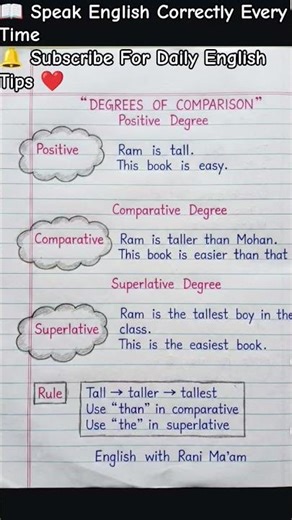 📖 Speak English Correctly Every
Time
🔔 Subscribe For Daily English
Tips ❤️
"DEGREES OF COMPARISON"
Positive Degree
Positive
Ram is tall.
This book is easy.
Comparative Degree
Comparative
Ram is taller than Mohan.
This book is easier than that
Superlative Degree
Superlative
Ram is the tallest boy in the
class.
This is the easiest book.
Rule
Tall → taller → tallest
Use "than" in comparative
Use "the" in superlative
English with Rani Ma'am